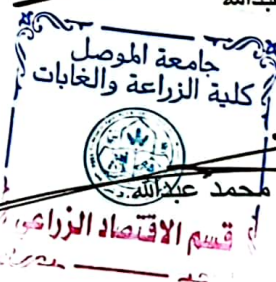 جامعة الموصل
كلية الزراعة والغابات
محمد عبدالله
قسم الاقتصاد الزراعي